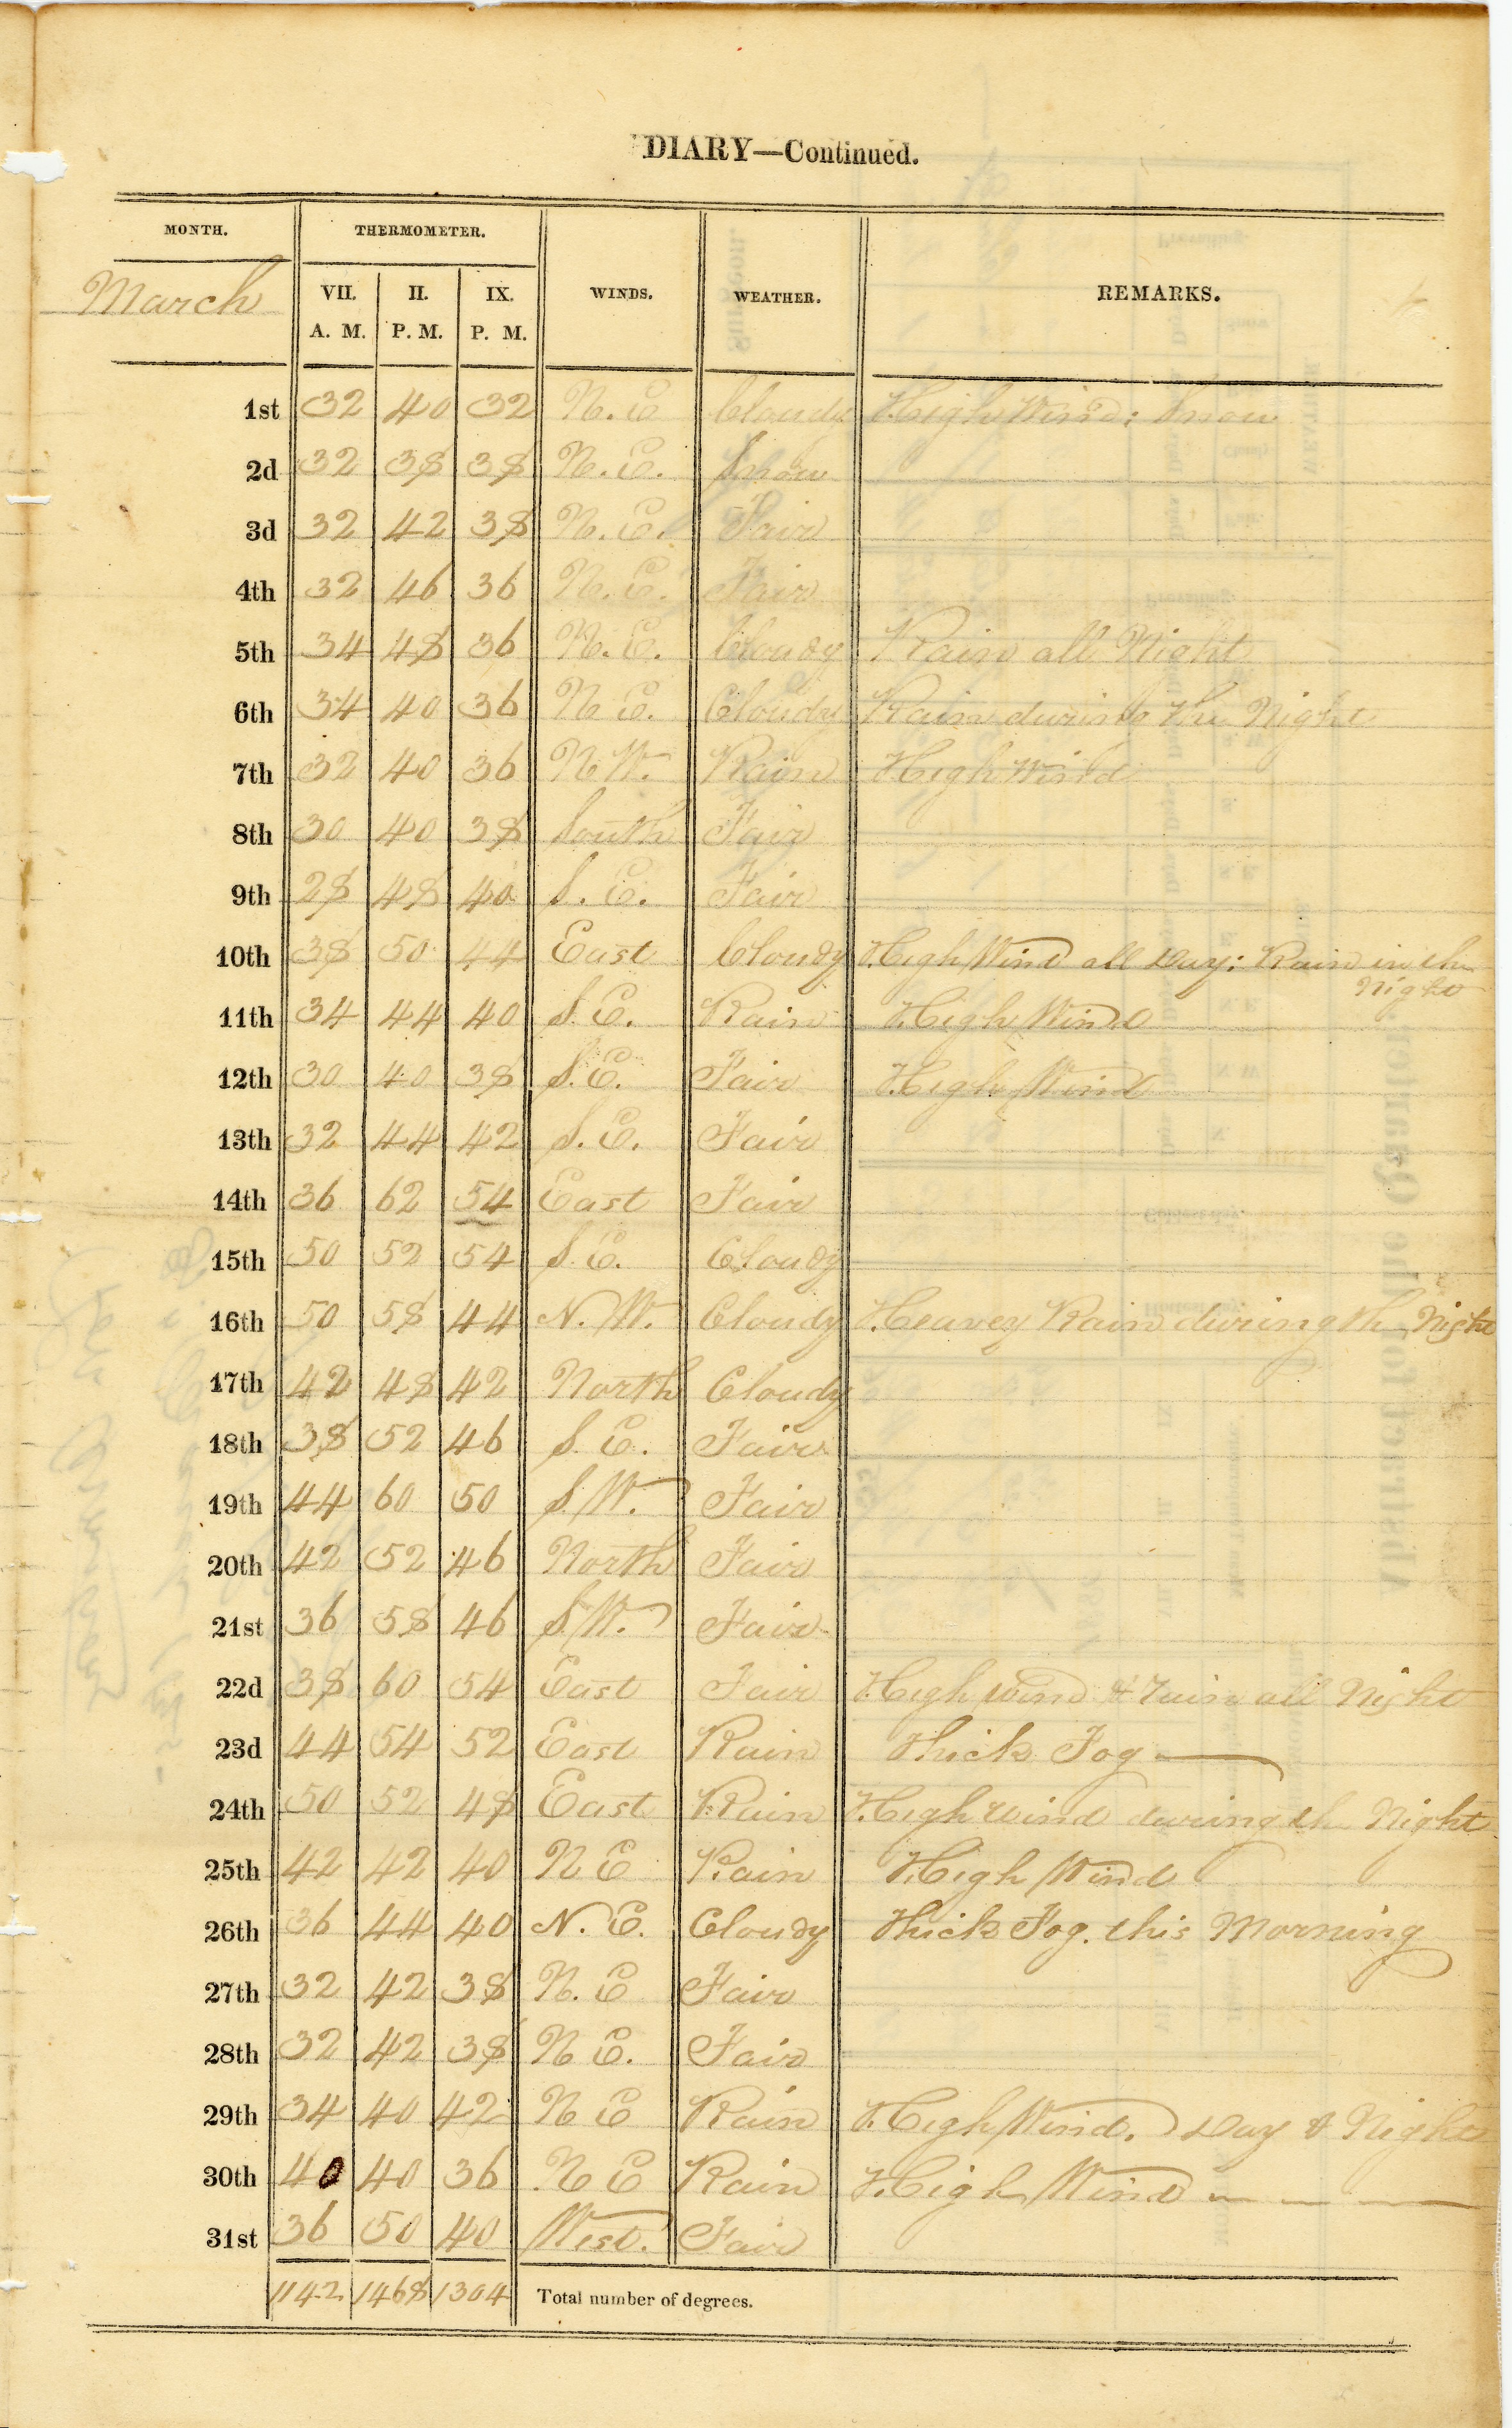 DIARY—Continued.
MONTH. THERMOMETER. WINDS. WEATHER. REMARKS.
March VII. A. M. II. P. M. IX. P. M.
1st 32 40 32 N. E Cloudy High Wind: Snow
2d 32 38 38 N. E. Snow
3d 32 42 38 N. E. Fair
4th 32 46 36 N. E. Fair
5th 34 48 36 N. E. Cloudy Rain all Night
6th 34 40 36 N E. Cloudy Rain during the Night
7th 32 40 36 N W. Rain High Wind
8th 30 40 38 South Fair
9th 28 48 40 S. E. Fair
10th 38 50 44 East Cloudy High Wind all Day: Rain in the
Night
11th 34 44 40 S. E. Rain High Wind
12th 30 40 38 S. E. Fair High Wind
13th 32 44 42 S. E. Fair
14th 36 62 54 East Fair
15th 50 52 54 S. E. Cloudy
16th 50 58 44 N. W. Cloudy Heavey Rain during th Night
17th 42 48 42 North Cloudy
18th 38 52 46 S. E. Fair
19th 44 60 50 S. W. Fair
20th 42 52 46 North Fair
21st 36 58 46 S. W. Fair
22d 38 60 54 East Fair High wind & rain all Night
23d 44 54 52 East Rain Thick Fog
24th 50 52 48 East Rain High wind during th Night
25th 42 42 40 N E Rain High Wind
26th 36 44 40 N. E. Cloudy Thick Fog. this Morning
27th 32 42 38 N. E Fair
28th 32 42 38 N E. Fair
29th 34 40 42 N E Rain High Wind. Day & Night
30th 40 40 36 N E Rain High Wind — — —
31st 36 50 40 West. Fair
1142 1468 1304 Total number of degrees.